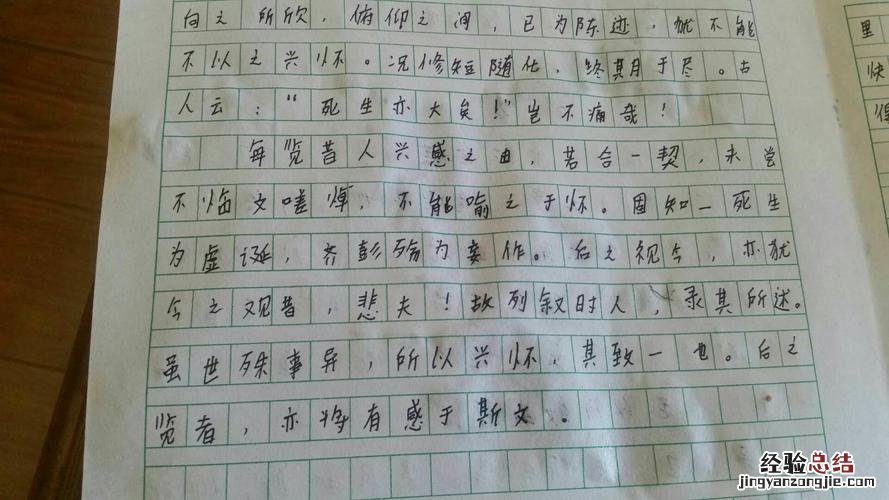 向之所欣，俯仰之间，已为陈迹，犹不能
不以之兴怀。况修短随化，终期于尽。古
人云：“死生亦大矣！”岂不痛哉！
每览昔人兴感之由，若合一契，未尝
不临文嗟悼，不能喻之于怀。固知一死生
为虚诞，齐彭殇为妄作。后之视今，亦犹
今之观昔，悲夫！故列叙时人，录其所述。
虽世殊事异，所以兴怀，其致一也。后之
览者，亦将有感于斯文。
里
快
经验总结
jingyanzongjie.com